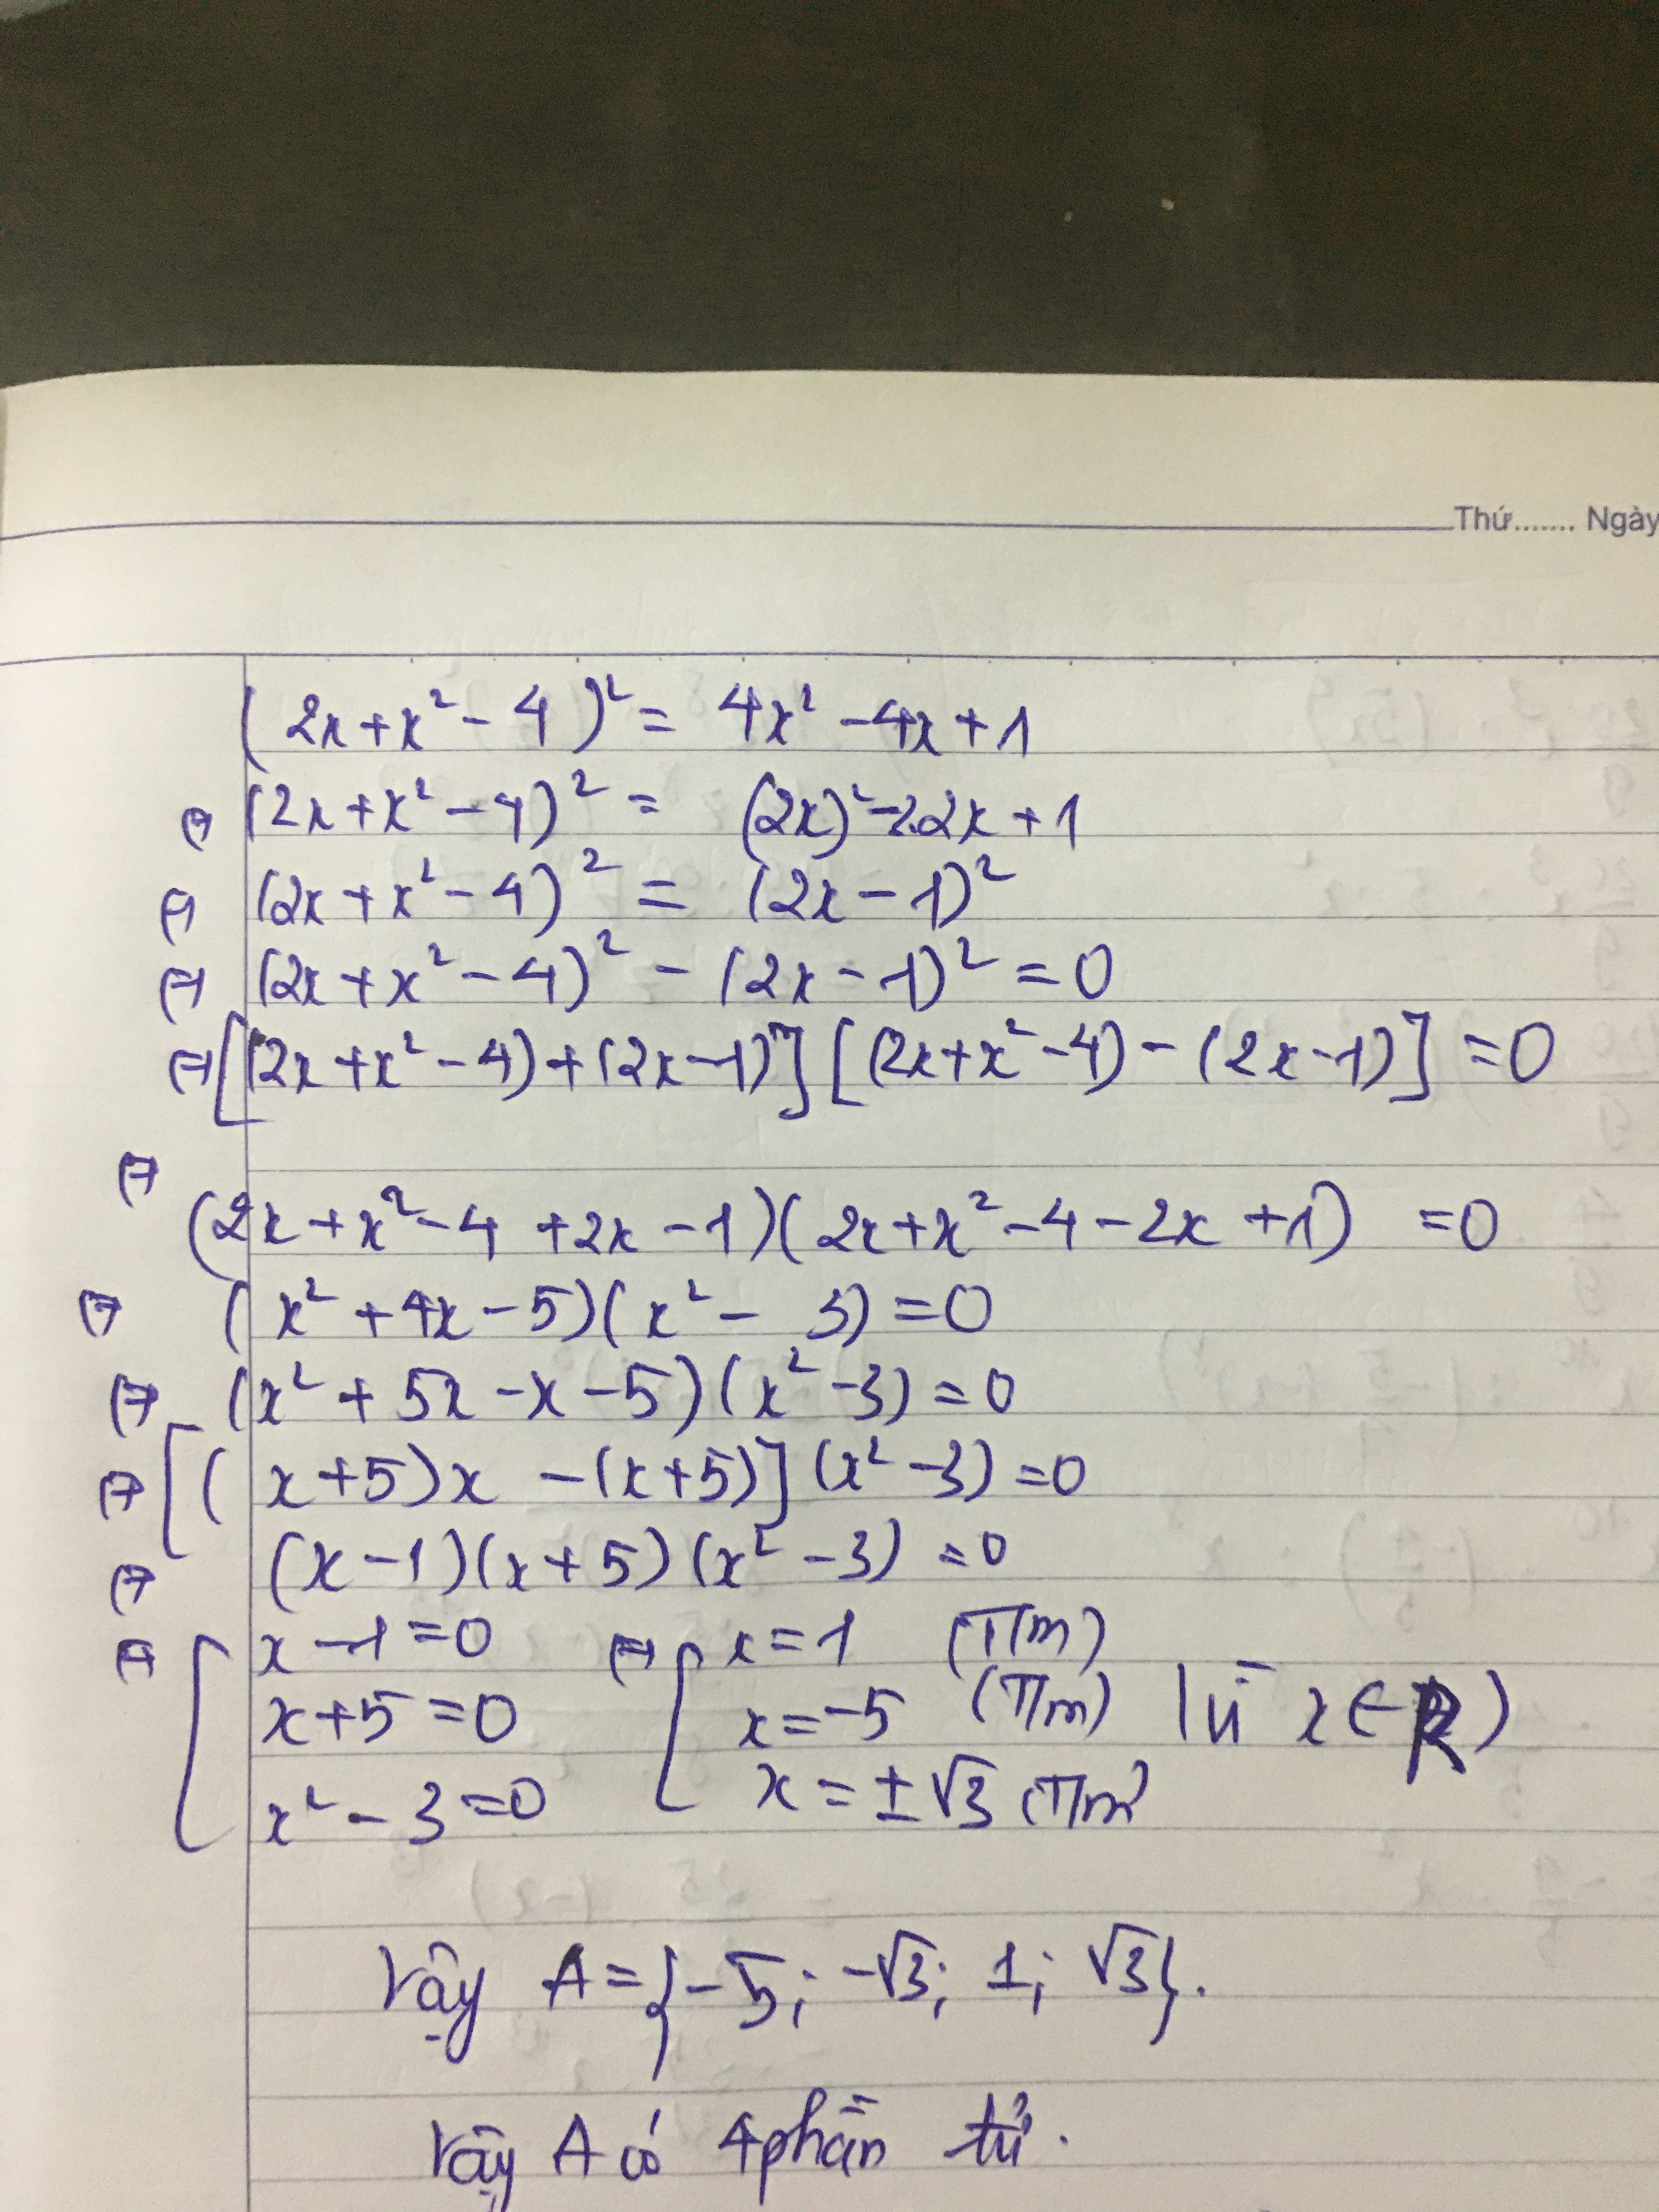 Thứ....... Ngày
(2x+x²-4)² = 4x² -4x+1
⇔ (2x+x²-4)² = (2x)²-2.2x+1
⇔ (2x+x²-4)² = (2x-1)²
⇔ (2x+x²-4)² - (2x-1)² = 0
⇔ [(2x+x²-4)+(2x-1)][(2x+x²-4)-(2x-1)] = 0
⇔ (2x+x²-4+2x-1)(2x+x²-4-2x+1) = 0
⇔ (x²+4x-5)(x²-3) = 0
⇔ (x²+5x-x-5)(x²-3) = 0
⇔ [(x+5)x -(x+5)](x²-3) = 0
⇔ (x-1)(x+5)(x²-3) = 0
⇔ [ x-1=0 ⇔ [ x=1 (TM)
x+5=0 x=-5 (TM) (vì x∈R)
x²-3=0 x=±√3 (TM)
Vậy A={-5; -√3; 1; √3}.
Vậy A có 4 phần tử.